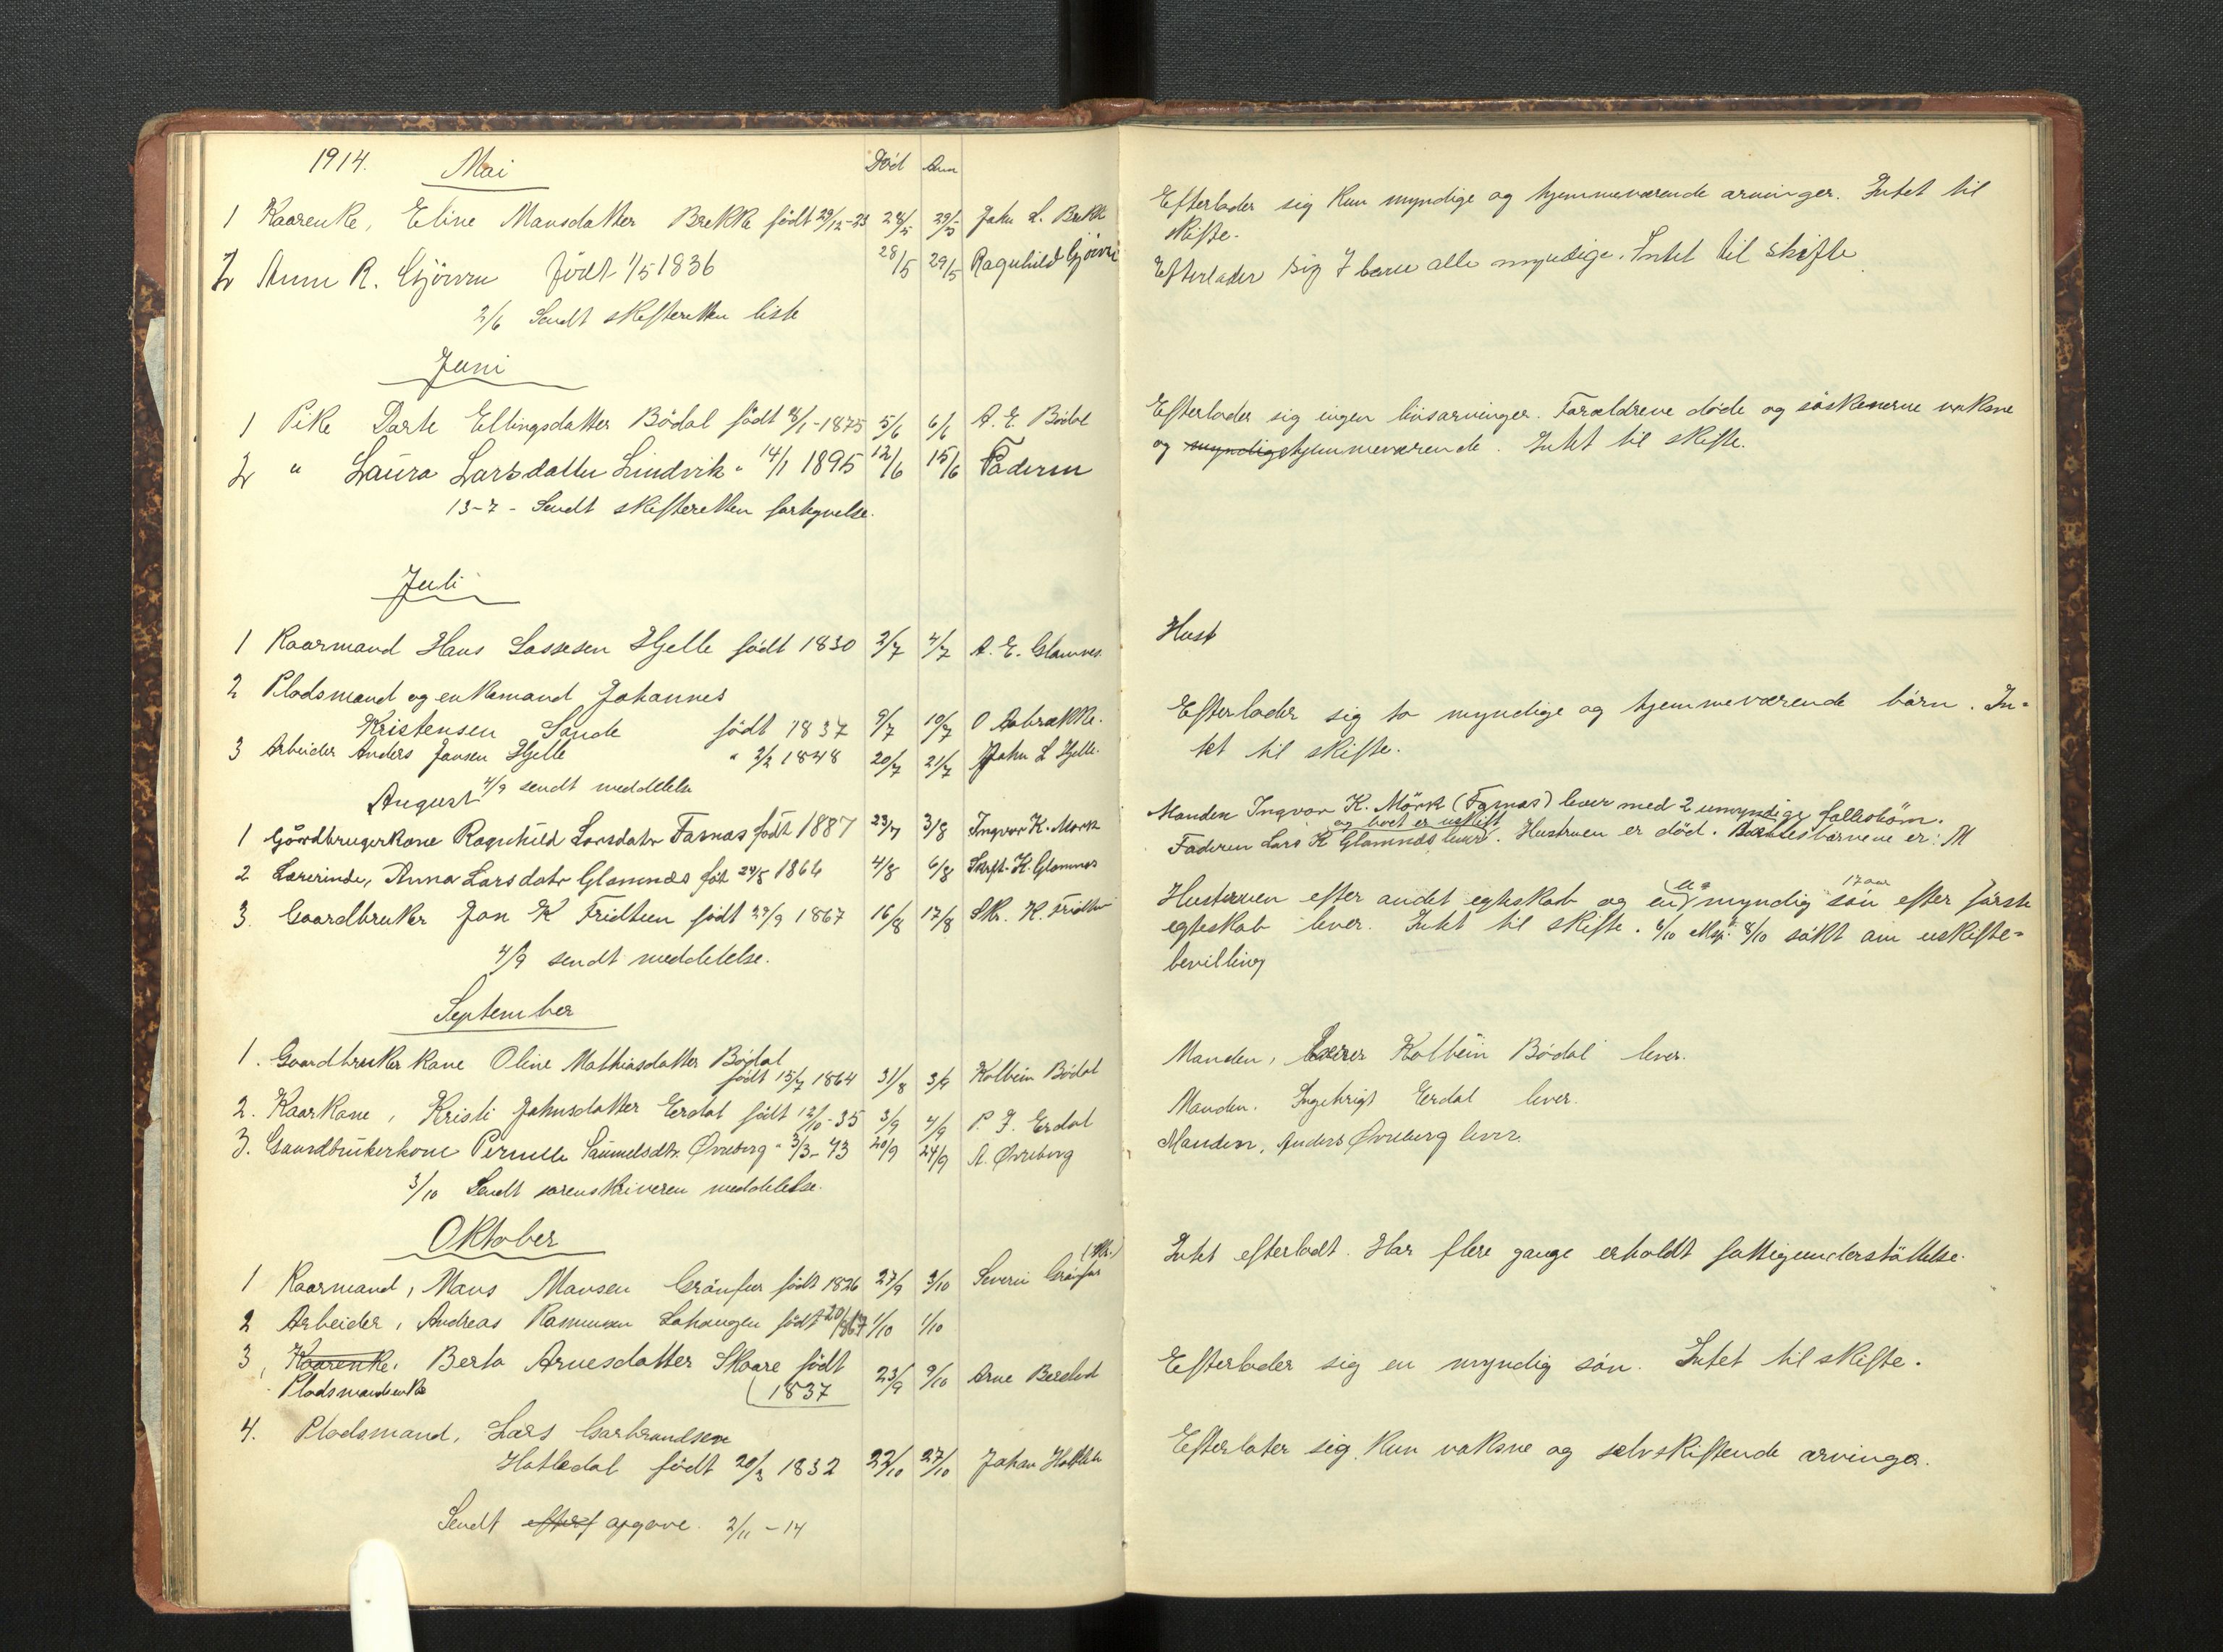 1914. Mai Död Anm
1 Kaarenke, Eline Mansdatter Brekke født 29/12-23 28/5 29/5 John L. Brekke
2 Anne R. Gjörven Født 1/5 1836 28/5 29/5 Ragnhild Gjörven
2/6 Sendt skifteretten liste
Juni
1 Pike Darte Ellingsdatter Bödal födt 8/1-1875 5/6 6/6 A. E. Bödal
2 " Laura Larsdatter Lindvik " 14/1 1895 12/6 15/6 Faderen
13-7 - Sendt skifteretten fortegnelse.
Juli
1 Kaarmand Hans Lassesen Hjelle födt 1830 2/7 4/7 A. E. Glamnes
2 Pladsmand og enkemand Johannes
Kristensen Sande födt 1837 9/7 10/7 O Aabrekke.
3 Arbeider Anders Jansen Hjelle " 2/2 1848 20/7 21/7 John L Hjelle.
August 4/9 sendt meddelelse
1 Gårdbrugerkone Ragnhild Larsdatr Fasnas født 1887 23/7 3/8 Ingvar K. Mörk
2 Lærerinde, Anna Larsdatr Glamnæs föt 24/8 1864 4/8 6/8 Skrft. K. Glamnes
3. Gaardbruker Jon K Fridtun födt 27/9 1867 16/8 17/8 Sk. K. Fridtun
4/9 sendt meddelelse.
September
1. Gaardbrukerkone Oline Mathiasdatter Bödal
födt 15/7 1864 31/8 3/9 Kolbein Bödal
2. Kaarkone, Kristi Johnsdatter Erdal födt 12/10-35 3/9 4/9 P. J. Erdal
3. Gaardbrukerkone Pernille Samuelsdtr. Øvreberg " 3/3-73 20/9 24/9 A. Øvreberg
3/10 Sendt sorenskriveren meddelelse.
Oktober
1 Kaarmand, Mons Monsen Grönfur födt 1826 27/9 3/10 Severin Grönfur
2 Arbeider, Andreas Rasmussen Lohaugen födt 20/ 1867 1/10 1/10
3, Kaarenke. Berta Arnesdatter Skaare födt
Pladsmandsenke 1837 23/9 9/10 Arne Berstad
4. Pladsmand, Lars Garbrandsen
Hatledal födt 20/3 1832 22/10 27/10 Johan Hatledal
Sendt efterf opgave. 2/11-14
Efterlader sig kun myndige og hjemmeværende arvinger. Intet til
skifte.
Efterlader sig 7 barn alle myndige. Intet til skifte
Efterlader sig ingen livsarvinger. Forældrene døde og söskenerne voksne
og myndige hjemmeværende. Intet til skifte.
Hust
Efterlader sig to myndige og hjemmeværende börn. In-
tet til skifte.
Manden Ingvar K. Mörk (Fasnas) lever med 2 umyndige fællesbörn.
og boet er uskift
Faderen Lars K Glamnæs lever. Hustruen er död. barnene er: M
17 aar
Hustruen efter andet egteskab og en umyndig sön efter förste
egteskab lever. Intet til skifte. 6/10 8/10 sökt om uskifte-
bevilling
Manden, Lærer Kolbein Bödal lever.
Manden. Ingebrigt Erdal lever.
Manden, Anders Øvreberg lever.
Intet efterladt. Har flere gange erholdt fattigunderstöttelse.
Efterlader sig en myndig sön. Intet til skifte.
Efterlater sig kun voksne og selvskiftende arvinger.